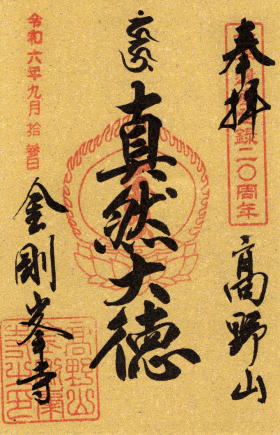 奉拝
録二〇周年
高野山
真然大徳
令和六年九月拾壱日
金剛峯寺